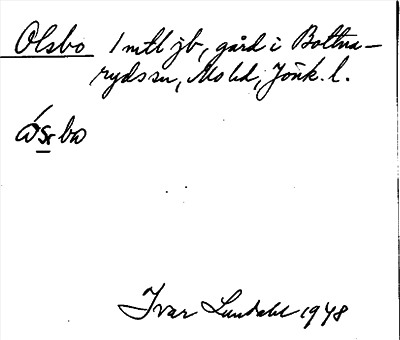 Olsbo 1 mtl jb, gård i Bottna-
ryds sn, Mo hd, Jönk. l.
ósbo
Ivar Lundahl 1948